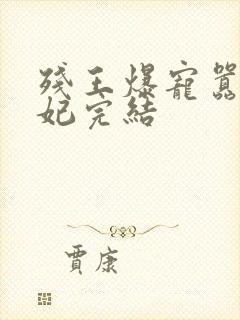 残王爆寵囂
妃完結
賈康